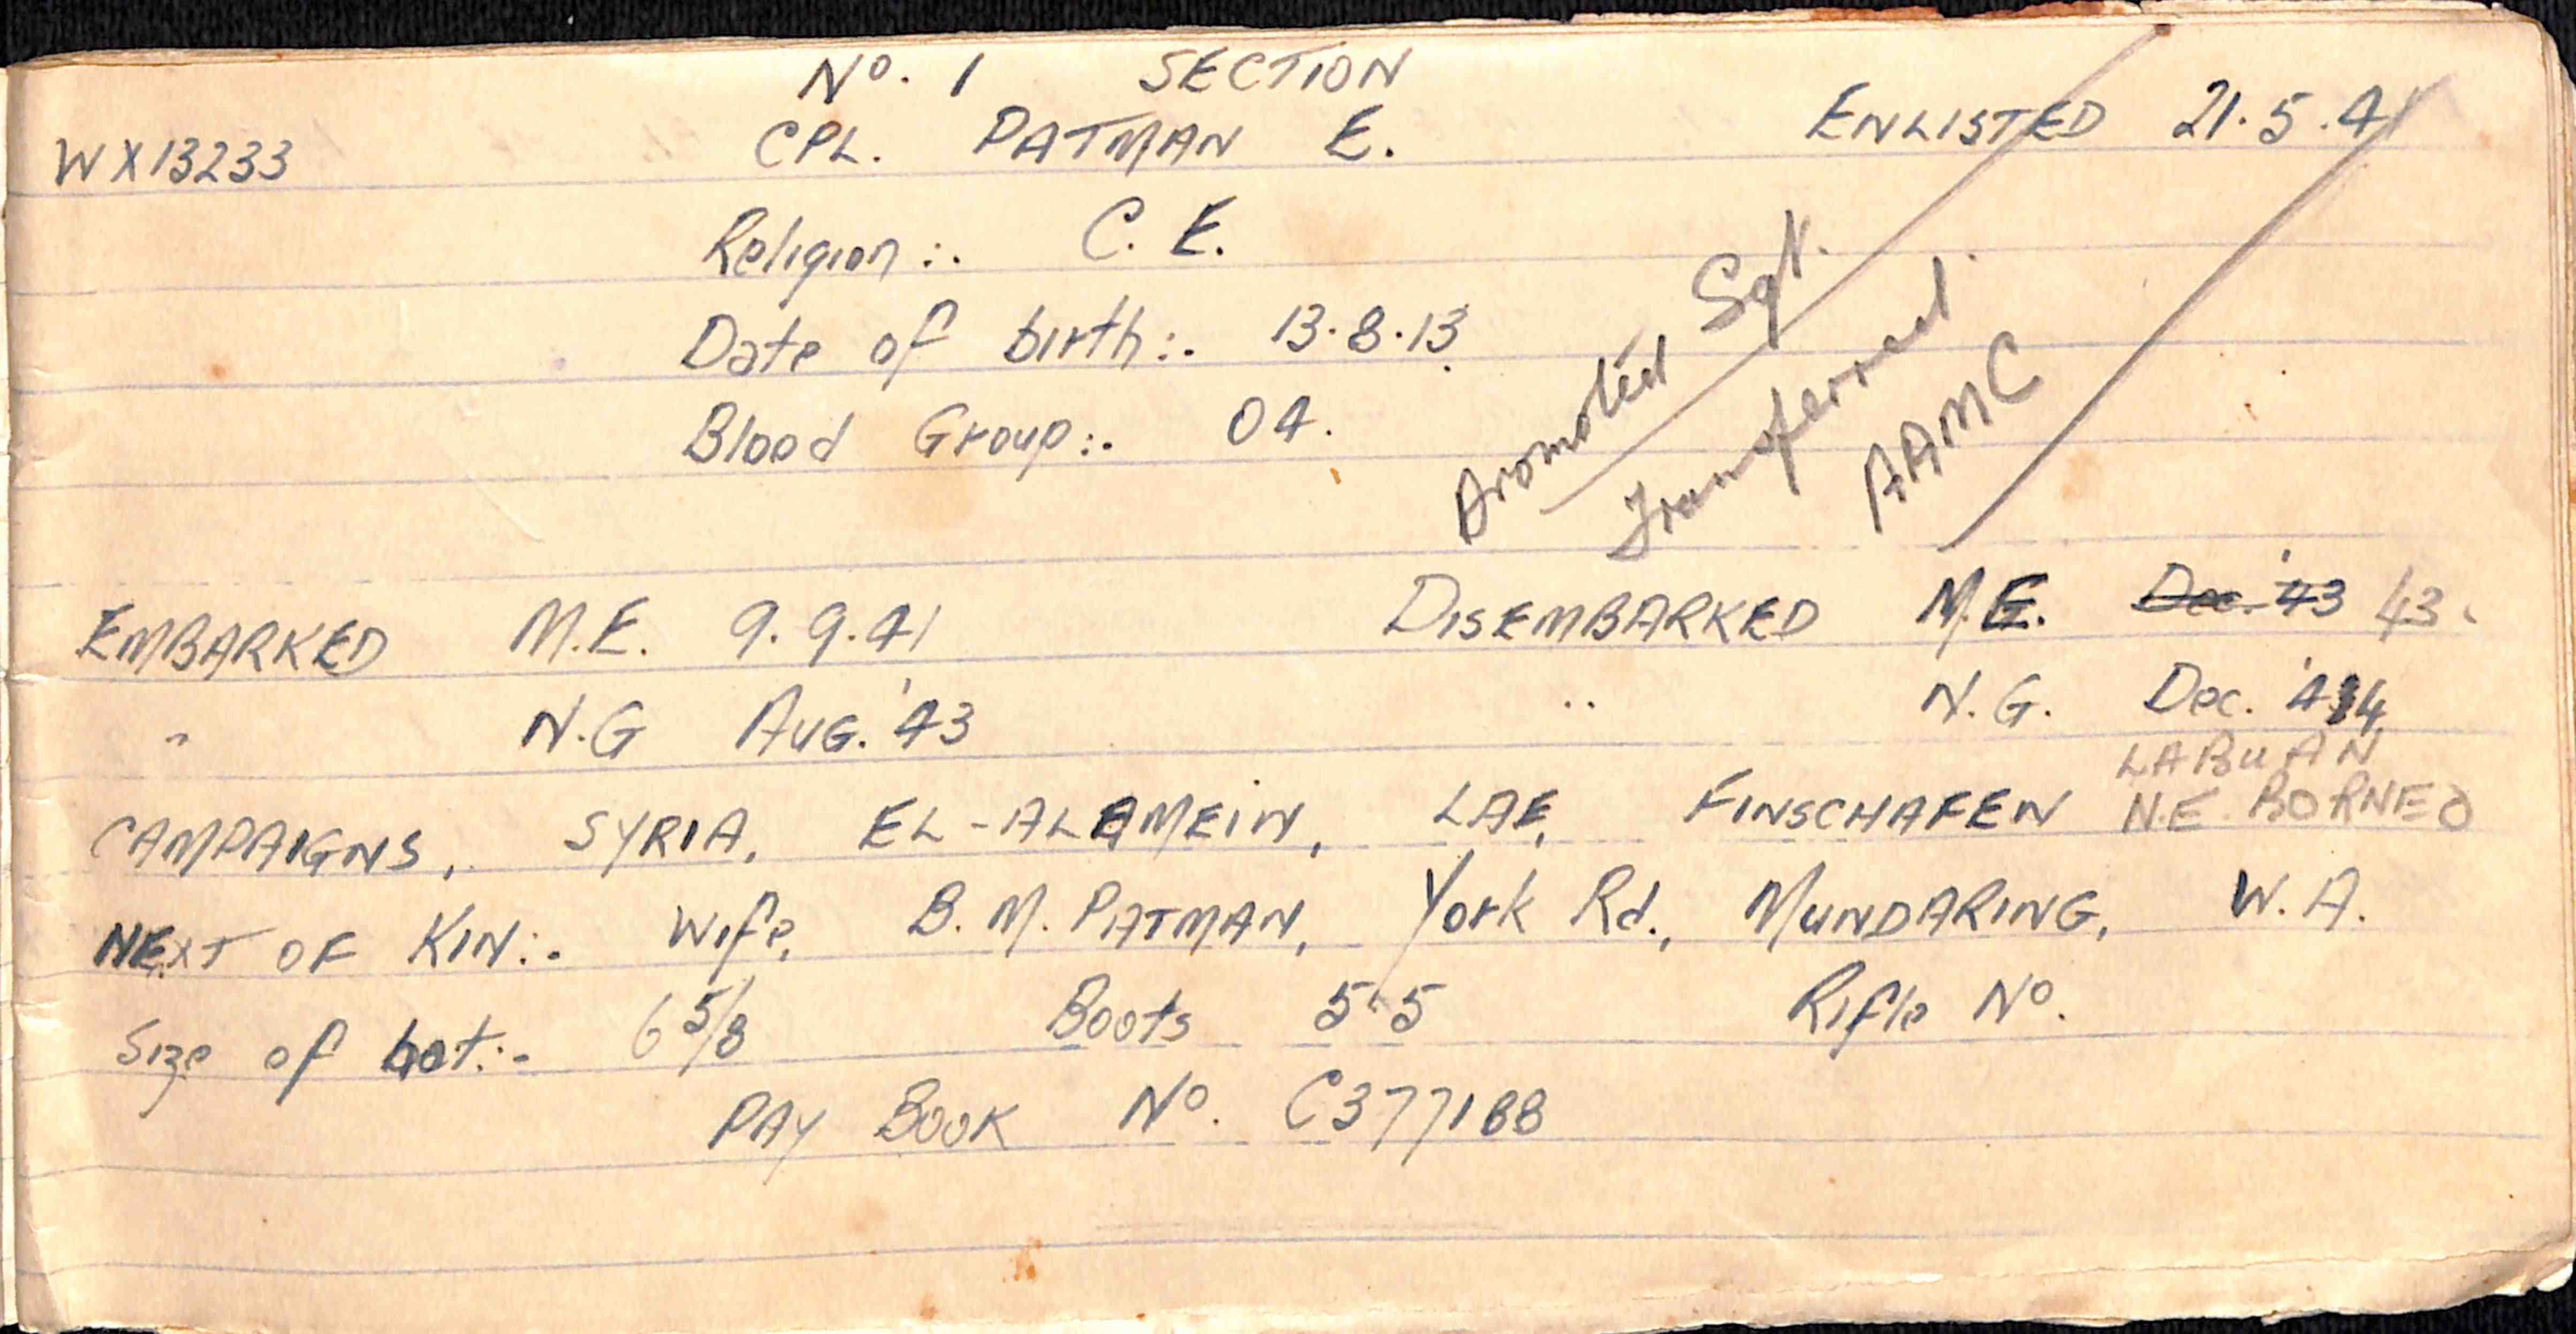 No. 1 SECTION
WX13233 CPL. PATMAN E. ENLISTED 21.5.41
Religion:. C. E.
Date of birth:. 13.8.13
Blood Group:. O4.
Promoted Sgt.
Transferred
AAMC
EMBARKED M.E. 9.9.41 DISEMBARKED M.E. Dec. '43 43.
" N.G AUG. '43 .. N.G. Dec. '44
LABUAN
CAMPAIGNS, SYRIA, EL-ALAMEIN, LAE, FINSCHAFEN N.E. BORNEO
NEXT OF KIN:. Wife, B. M. PATMAN, York Rd., MUNDARING, W. A.
Size of hat:- 6 5/8 Boots 5-5 Rifle No.
PAY BOOK No. C377188